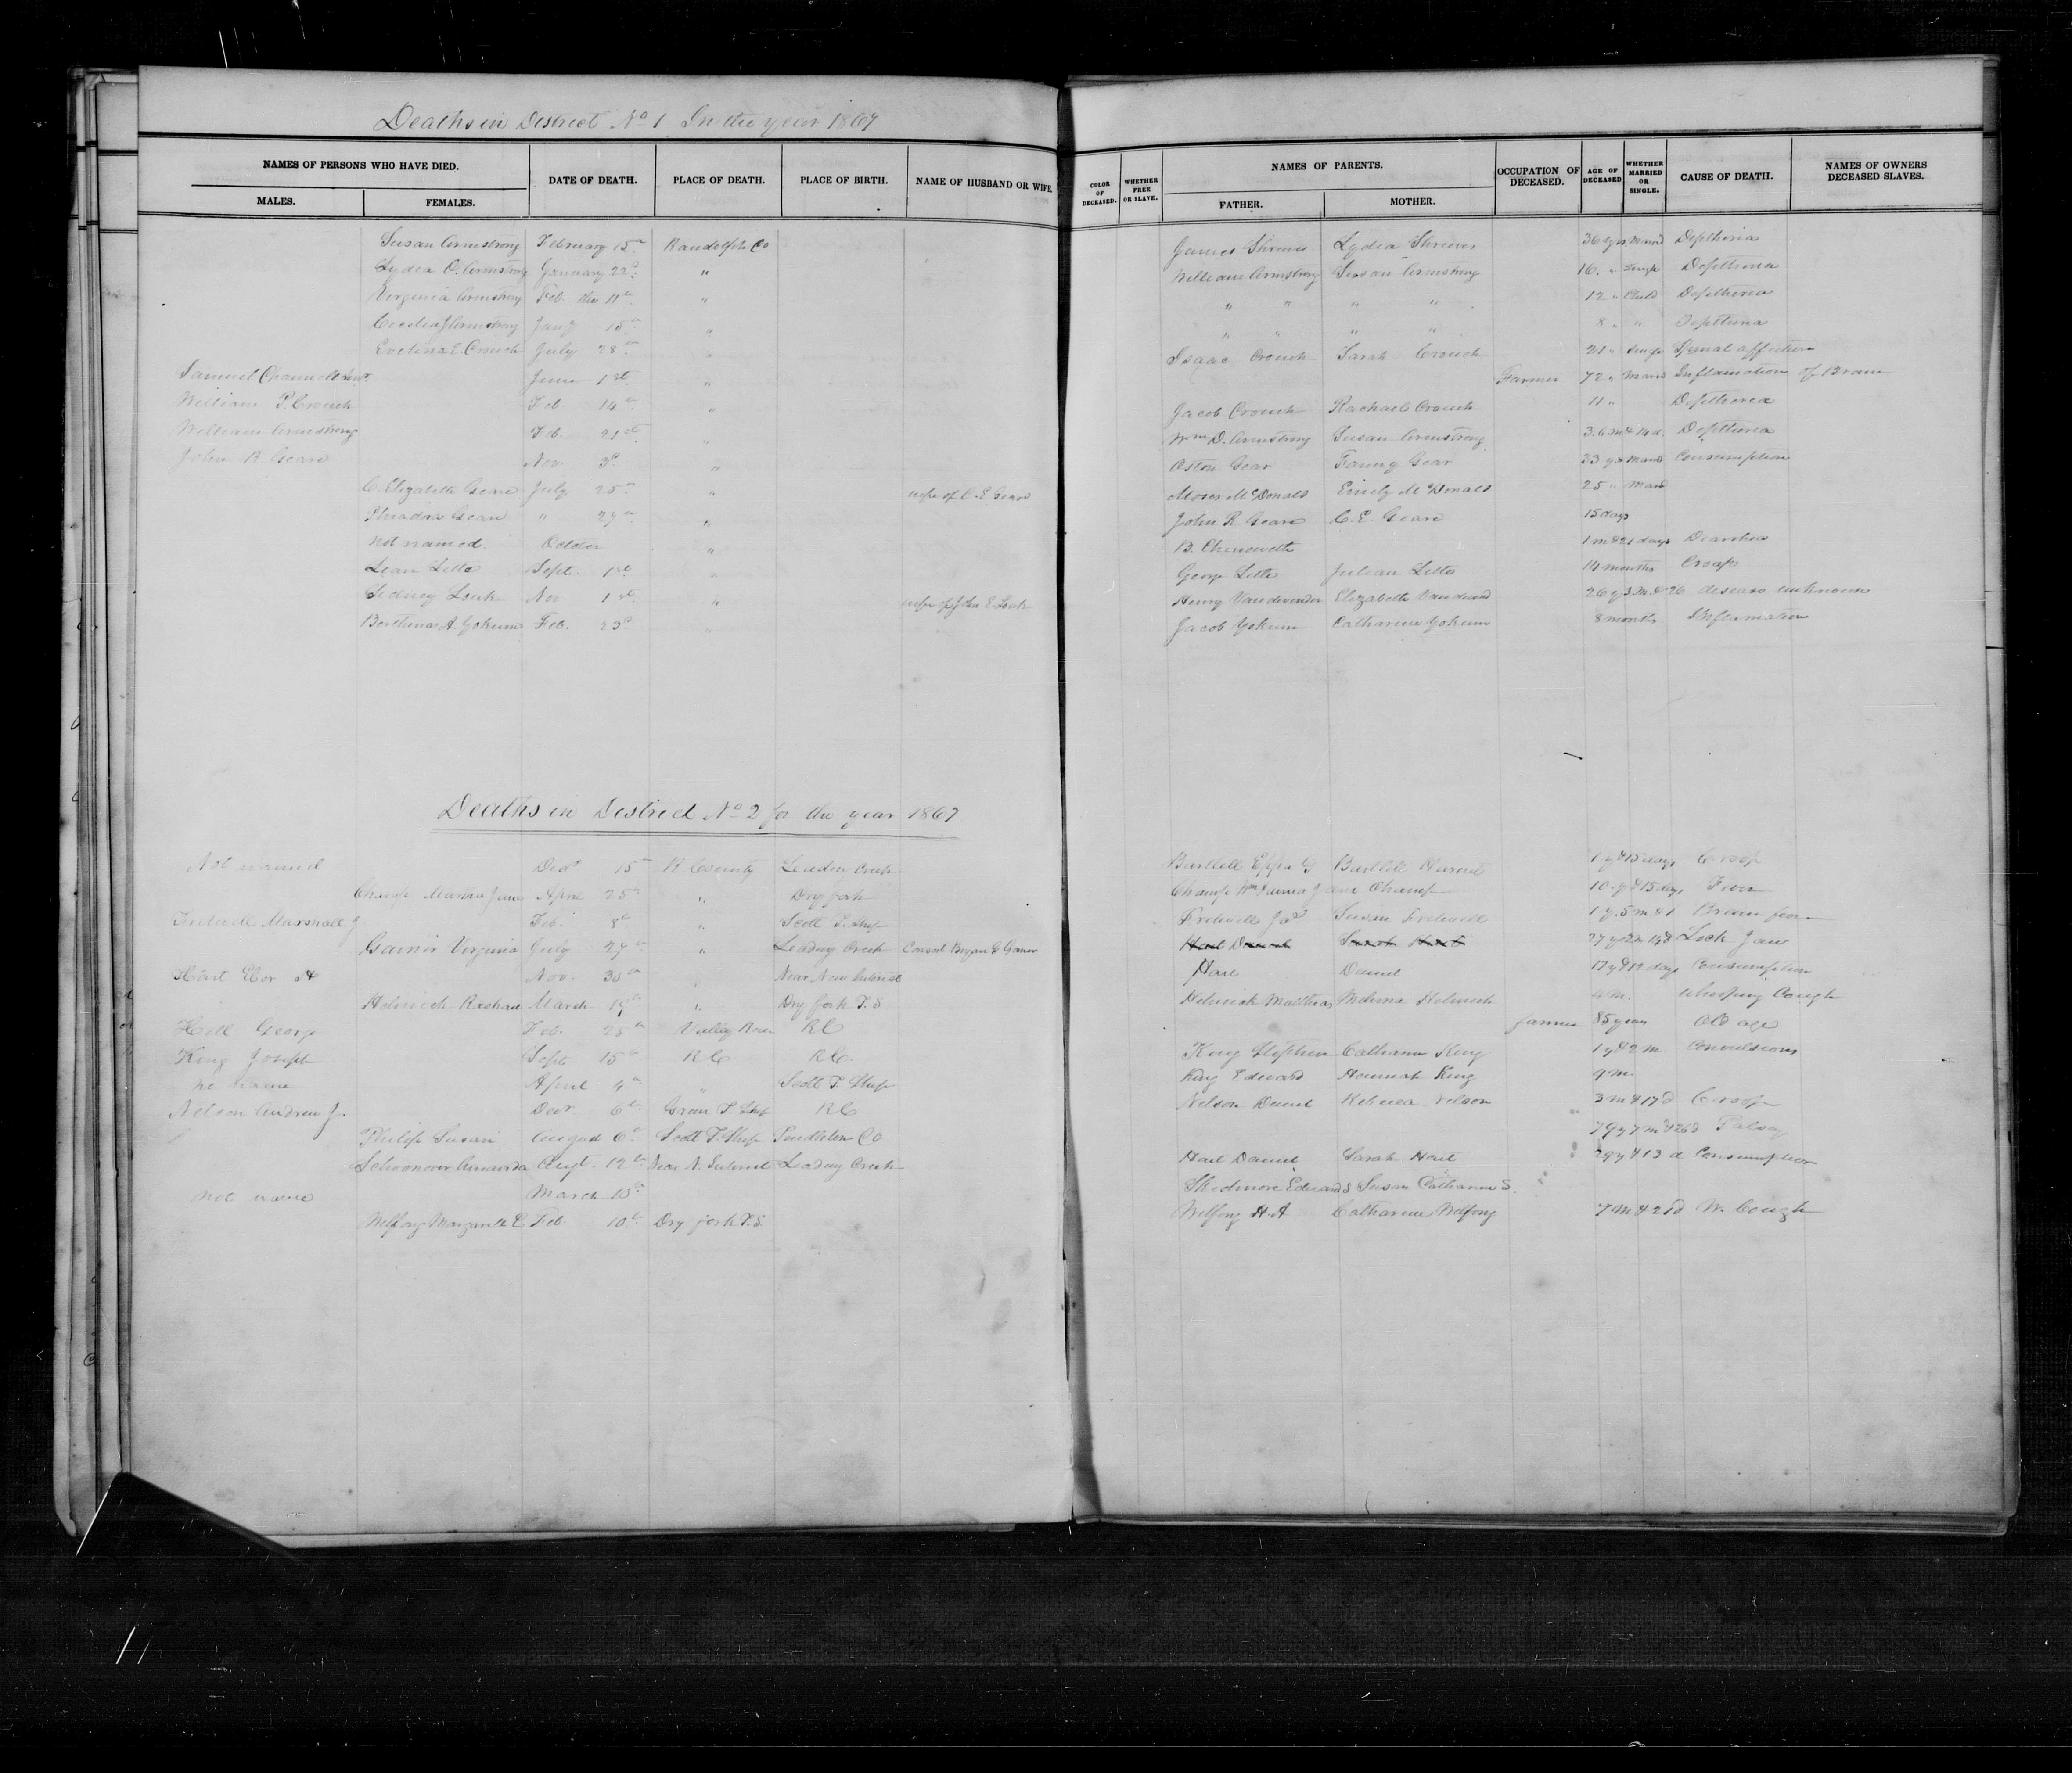 Deaths in District No 1 In the year 1867
NAMES OF PERSONS WHO HAVE DIED. DATE OF DEATH. PLACE OF DEATH. PLACE OF BIRTH. NAME OF HUSBAND OR WIFE. COLOR OF DECEASED. WHETHER FREE OR SLAVE. NAMES OF PARENTS. OCCUPATION OF DECEASED. AGE OF DECEASED WHETHER MARRIED OR SINGLE. CAUSE OF DEATH. NAMES OF OWNERS DECEASED SLAVES.
MALES. FEMALES. FATHER. MOTHER.
Susan Armstrong February 15th Randolph Co James Shreves Lydia Shreves 36 yrs Marrd Depltheria
Lydia O. Armstrong January 22d " William Armstrong Susan Armstrong 16 " Single Depltheria
Virginia Armstrong Feb. the 11th " " " " " 12 " Child Depltheria
Cecelia J Armstrong Jany 15th " " " " " 8 " " Depltheria
Evelina E. Crouch July 28th " Isaac Crouch Sarah Crouch 21 " Single Spinal affection
Samuel Channell June 1st " Farmer 72 " Marrd Inflamation of Brain
William P. Crouch Feb. 14th " Jacob Crouch Rachael Crouch 11 " Depltherea
William Armstrong Feb. 21st " Wm D. Armstrong Susan Armstrong 3. 6 m & 14 d. Depltheria
John R. Geare Nov. 3d " Oston Gear Fanny Gear 33 ys Marrd Consumption
C. Elizabeth Geare July 25th " wife of Moses McDonald Emily McDonald 25 " Marrd
Geare " 27th " John R Geare C. E. Geare 15 days
not named. October " B. Chenoweth 1 m & 21 days Diarrhea
Sept. 1st " George Julian 14 months Croup
Sidney Louk Nov 1st " wife of John E Louk Henry Vandevender Elizabeth 26 y 3 m & 26 disease unknown
A Yokum Feb. 23d " Jacob Yokum Catharine Yokum 8 months Inflamation
Deaths in District No 2 for the year 1867
Not named Decr 15th R County Leading Creek Bartlett Eppa G Bartlett 1 y & 15 days Croop
Champ Martha Jane April 25th " Dry fork Jane Champ 10 y & 15 days Fever
Fretwell Marshall J Feb. 8th " Scott T. Ship Fretwell Jas Susan Fretwell 1 y. 5 m & 1 Brain fever
Gainer Virginia July 27th " Leading Creek Consort Bryan G Gainer Lock Jaw
Hart Nov. 30th " Near New Interest Hart Daniel 17 y & 12 days Consumption
March 19th " Dry fork T. S. 4 m. Whooping Cough
Hill George Feb. 28th Valley River RC farmer 85 years Old age
King Joseph Sept 15th RC RC. King Stephen Catharine King 1 y & 2 m. Convulsions
no name April 4th " Scott T. Ship King Edward Hannah King 9 m.
Nelson Andrew J. Decr 6th Green T. Ship RC Nelson Daniel Rebecca Nelson 3 m & 17 d Croop
Philip Susan August 6th Scott T. Ship Pendleton Co 79 y 7 m & 26 d Palsey
Schoonover Amanda Augt. 12th Near N. Interest Leading Creek Hart Daniel Sarah Hart 29 y & 13 d Consumption
not name March 15th Skidmore Edward S Susan Catharine S.
Margarett E Feb. 10th Dry fork T. S. H. A Catharine 7 m & 21 d W. Cough